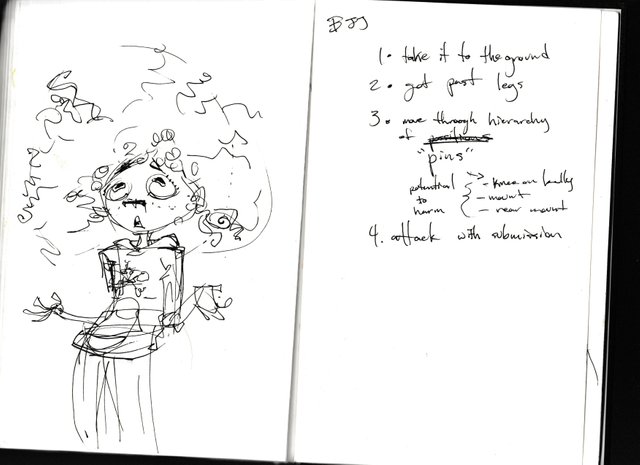 BJJ
1. take it to the ground
2. get past legs
3. move through hierarchy
of positions
"pins"
potential - knee on belly
to - mount
harm - rear mount
4. attack with submission